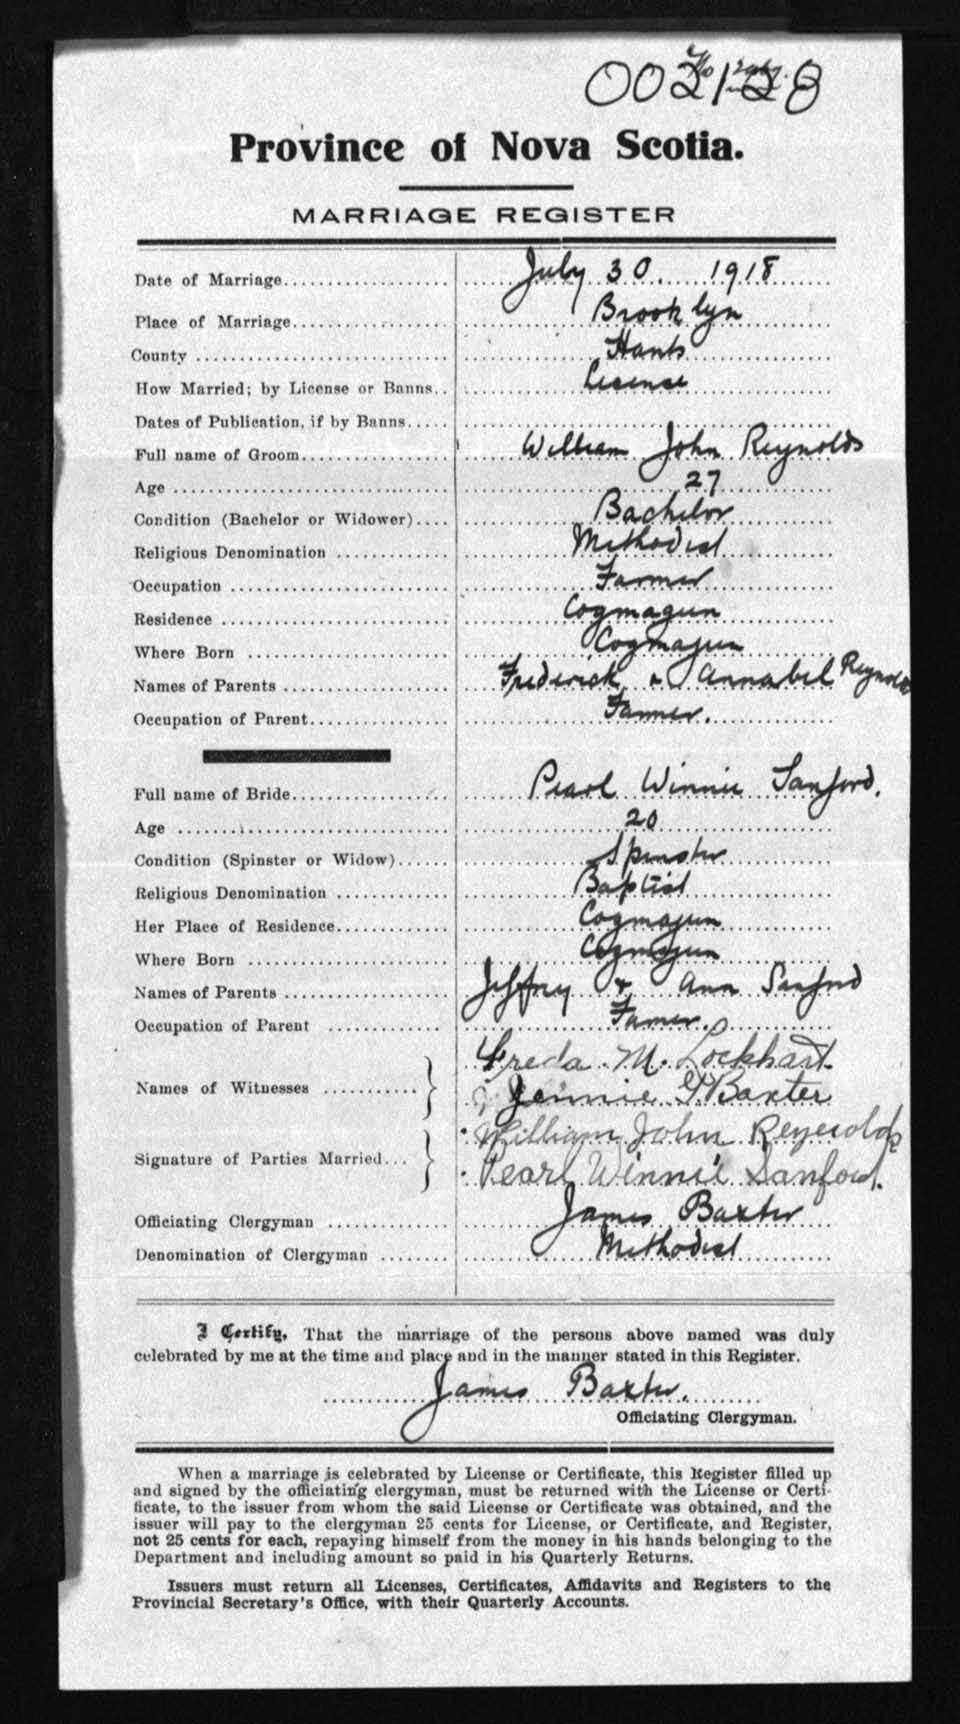 002128
Province of Nova Scotia.
MARRIAGE REGISTER
Date of Marriage July 30. 1918
Place of Marriage Brooklyn
County Hants
How Married; by License or Banns License
Dates of Publication, if by Banns
Full name of Groom William John Reynolds
Age 27
Condition (Bachelor or Widower) Bachelor
Religious Denomination Methodist
Occupation Farmer
Residence Cogmagun
Where Born Cogmagun
Names of Parents Frederick & Annabel Reynolds
Occupation of Parent Farmer.
Full name of Bride Pearl Winnie Sanford.
Age 20
Condition (Spinster or Widow) Spinster
Religious Denomination Baptist
Her Place of Residence Cogmagun
Where Born Cogmagun
Names of Parents Jeffrey & Ann Sanford
Occupation of Parent Farmer.
Freda M. Lockhart
Names of Witnesses Jennie G Baxter
William John Reynolds
Signature of Parties Married
Pearl Winnie Sanford.
Officiating Clergyman James Baxter
Denomination of Clergyman Methodist
I Certify, That the marriage of the persons above named was duly
celebrated by me at the time and place and in the manner stated in this Register.
James Baxter.
Officiating Clergyman.
When a marriage is celebrated by License or Certificate, this Register filled up
and signed by the officiating clergyman, must be returned with the License or Certi-
ficate, to the issuer from whom the said License or Certificate was obtained, and the
issuer will pay to the clergyman 25 cents for License, or Certificate, and Register,
not 25 cents for each, repaying himself from the money in his hands belonging to the
Department and including amount so paid in his Quarterly Returns.
Issuers must return all Licenses, Certificates, Affidavits and Registers to the
Provincial Secretary's Office, with their Quarterly Accounts.